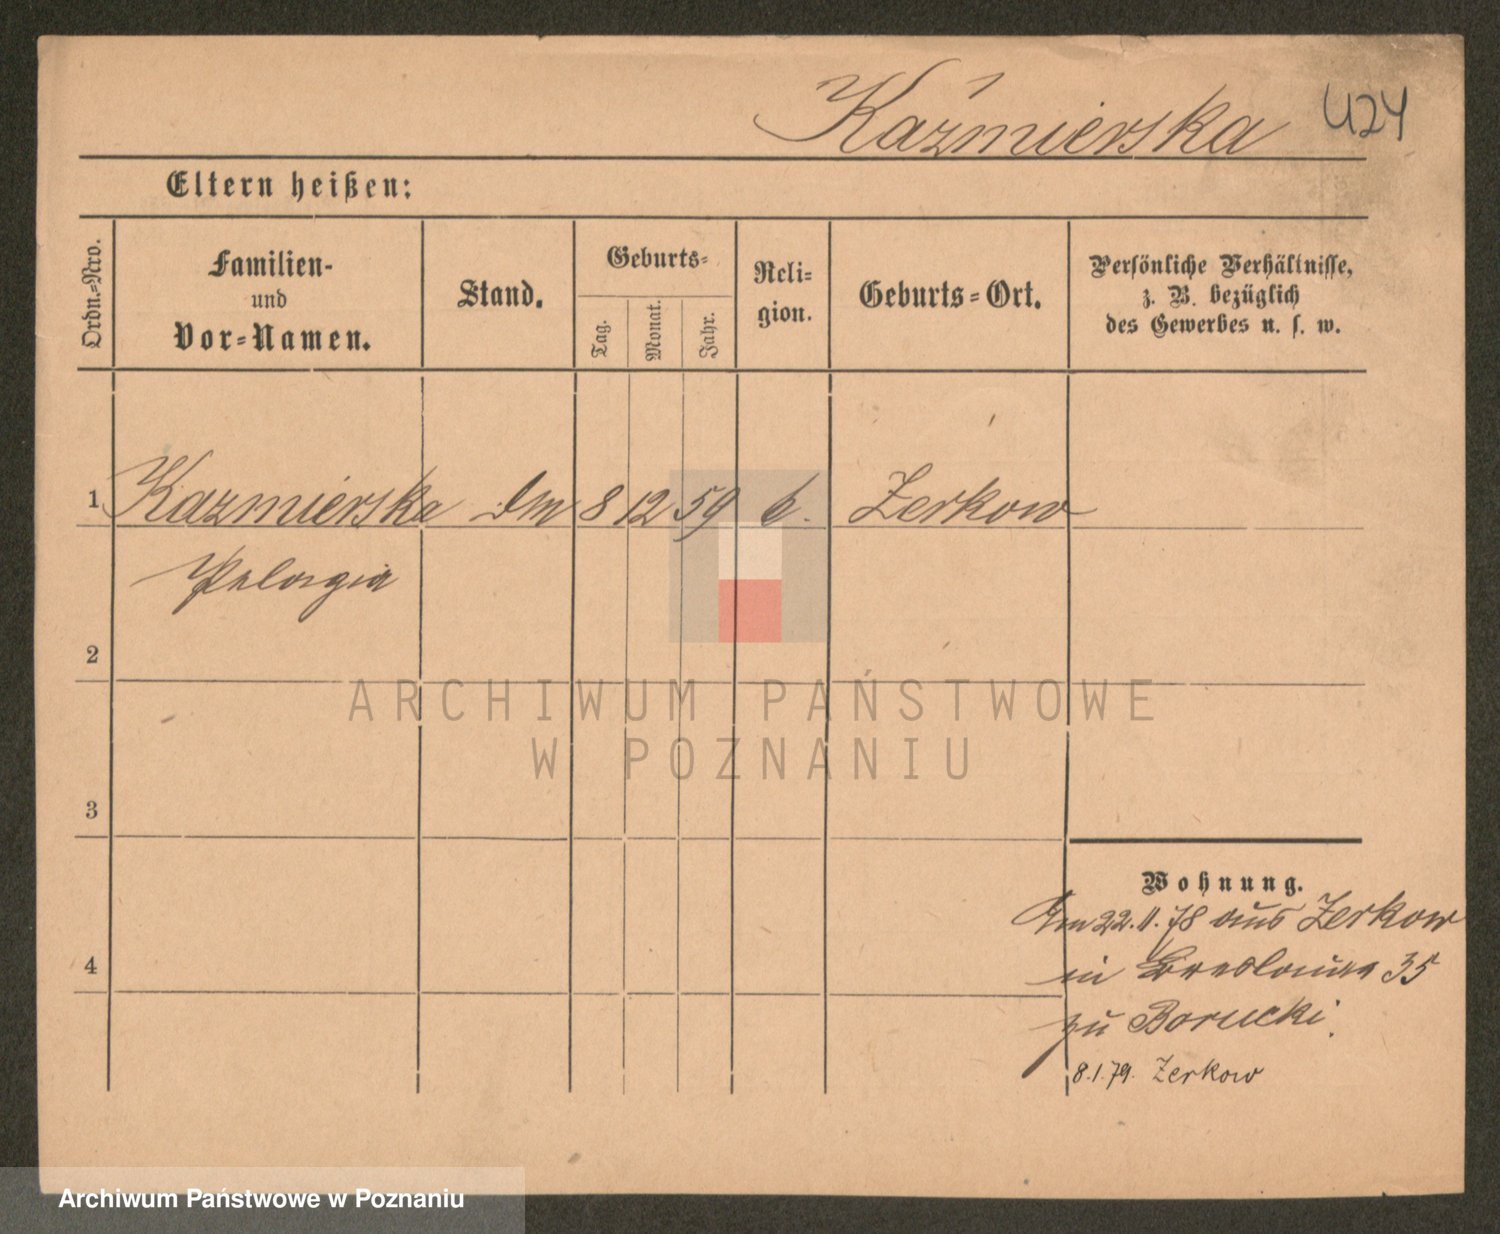 Kaźmierska 424
Eltern heißen:
Ordn.-Nro.
Familien-
und
Vor-Namen.
Stand.
Geburts-
Tag.
Monat.
Jahr.
Reli-
gion.
Geburts-Ort.
Persönliche Verhältnisse,
z. B. bezüglich
des Gewerbes u. s. w.
1 Kazmierska 8 12 59 Zerkow
Pelagia
2
3
4
Wohnung.
Am 22.11.78 aus Zerkow
in Breslauer 35
zu Borucki.
8.1.79. Zerkow
ARCHIWUM PAŃSTWOWE
W POZNANIU
Archiwum Państwowe w Poznaniu